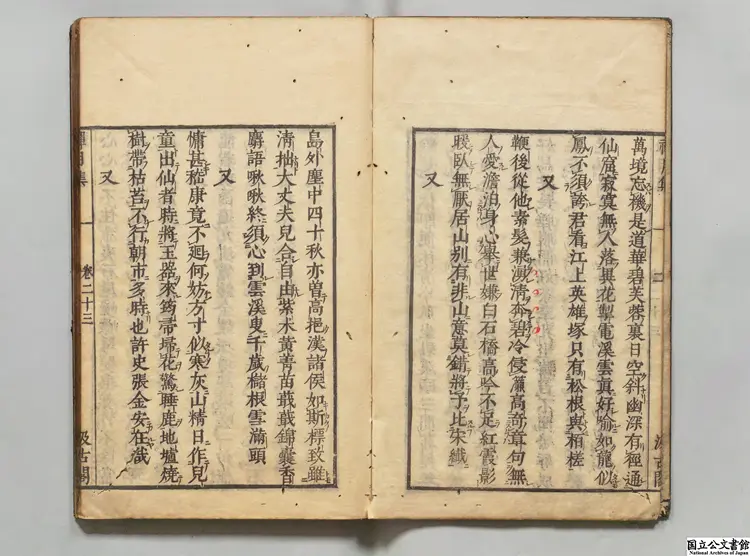 萬境忘機是道華碧芙蓉裏日空斜幽深有徑通
仙窟寂寞無人落異花掣電溪雲真好喻如龍似
鳳不須誇君看江上英雄塚只有松根與柏槎
又
鞭後從他素髮兼湧清奔碧冷侵簾高奇章句無
人愛澹泊身心舉世嫌白石橋高吟不足紅霞影
暖臥無厭居山別有非山意莫錯將予比宋纖
又
島外塵中四十秋亦曾高挹漢諸侯如斯標致雖
清拙大丈夫兒合自由紫朮黃菁苗蕺蕺錦囊香
麝語啾啾終須心到雲溪叟千歲櫧根雪滿頭
又
慵甚嵇康竟不迴何妨方寸似寒灰山精日作兒
童出仙者時將玉器來筠帚掃花驚睡鹿地壚燒
樹帶枯苔不行朝市多時也許史張金安在哉
禪月集 卷二十三 汲古閣
国立公文書館
National Archives of Japan